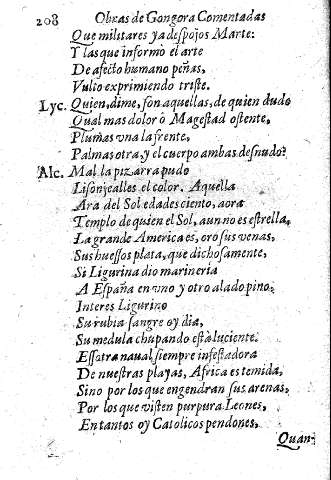 208 Obras de Gongora Comentadas
Que militares ya despojos Marte:
Y las que informò el arte
De afecto humano peñas,
Vulto exprimiendo triste.
Lyc. Quien, dime, son aquellas, de quien dudo
Qual mas dolor ò Magestad ostente,
Plumas vna la frente,
Palmas otra, y el cuerpo ambas desnudo?
Alc. Mal la pizarra pudo
Lisonjealles el color. Aquella
Ara del Sol edades ciento, aora
Templo de quien el Sol, aun no es estrella,
La grande America es, oro sus venas,
Sus huessos plata, que dichosamente,
Si Ligurina dio marineria
A España en vno y otro alado pino.
Interes Ligurino
Su rubia sangre oy dia,
Su medula chupando està luciente.
Essotra naual siempre infestadora
De nuestras playas, Africa es temida,
Sino por los que engendran sus arenas,
Por los que visten purpura Leones,
En tantos oy Catolicos pendones,
Quan-